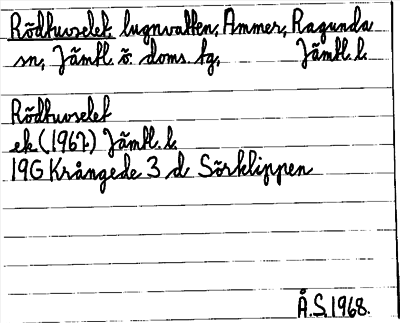 Rödhuvselet lugnvatten, Ammer, Ragunda
sn, Jämtl. ö. doms. tg, Jämtl. l.
Rödhuvselet
ek (1967) Jämtl. l.
19G Krångede 3 d Sörklippen
Å.S. 1968.